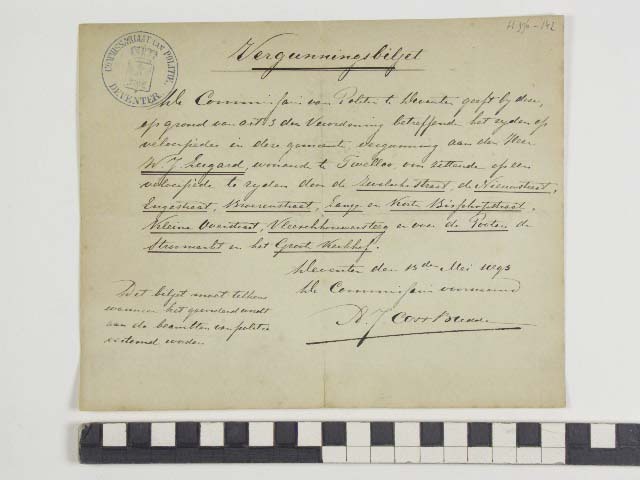 H 996-142
COMMISSARIAAT VAN POLITIE.
DEVENTER
Vergunningsbiljet
De Commissaris van Politie te Deventer geeft by deze,
op grond van art: 3 der Verordening betreffende het ryden op
velocipedes in deze gemeente, vergunning aan den Heer
W. J. Leegard, wonende te Twelloo, om zittende op een
velocipede te ryden door de Engestraat, de Nieuwstraat,
Engestraat, Broerenstraat, Lange en Korte Bisschopstraat,
Kleine Overstraat, Vleeschhouwersteeg en over de Pooten, de
Stroomarkt en het Groote Kerkhof.
Deventer den 15den Mei 1893
De Commissaris voornoemd
Dit biljet moet telkens
wanneer het gevorderd wordt
aan de beambten van politie
vertoond worden